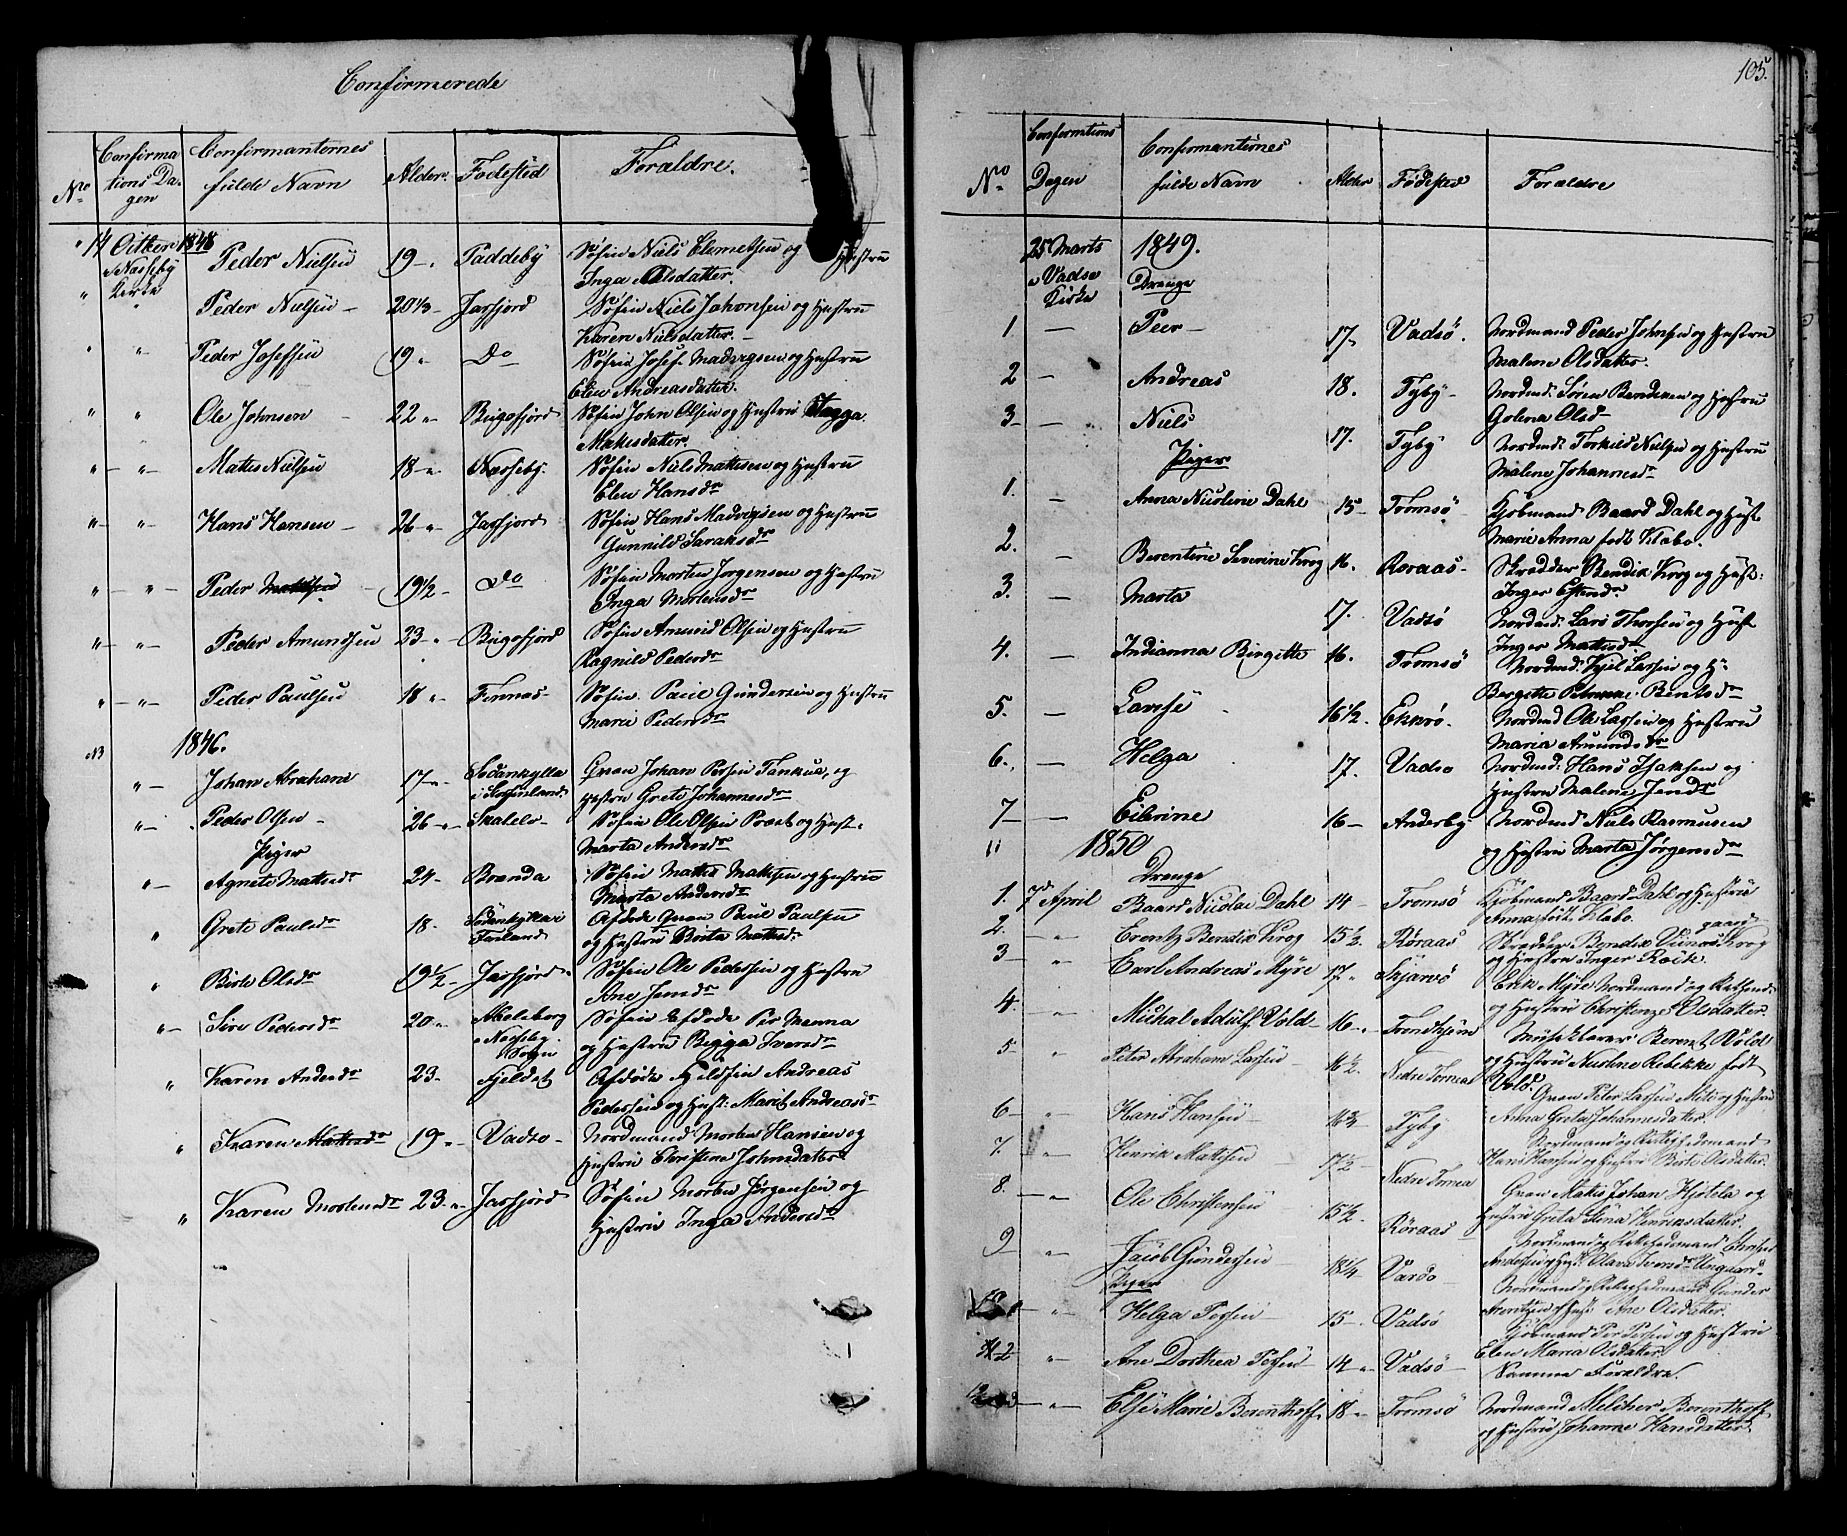 Confirmerede
No
Confirma
tions Da-
gen
Confirmanternes
fulde Navn
Alder.
Fødested
Forældre.
" 14 Octber 1848
i Næsseby
Kirke
Peder Nielsen 19 - " Paddeby Søfin Niels Clemetsen og Hustru
Inga Olsdatter.
" " Peder Nielsen - 20 1/3 - Jarfjord Søfin Niels Johnsen og Hustru
Karen Nielsdatter. -
" " Peder Josefsen 19 " Do Søfin Josef Madvigsen og Hustru
Elen Andreasdatter.
" " Ole Johnsen - 22 " - Bugøfjord Søfin John Olsen og Hustru
Matisdatter.
" - " - Mathis Nielsen 18 - " Næsseby. Søfin Niels Mathisen og Hustru
Elen Hansdr
" - " - Hans Hansen - 26 - " Jarfjord Søfin Hans Madvigsen og Hustru
Gunnild Larsksdr
" - " - Peder 19 1/2 - Do Søfin Morten Jørgensen og Hustru
Inga Mortensdr
" - " - Peder Amundsen 23 - " Bugøfjord Søfin Amund Olsen og Hustru
Ragnild Pedersdr
" - " - Peder Paulsen 18 " Finnæs - Søfin Paul Gundersen og Hustru
Marie Pedersdr
1846.
" - Johan Abraham 17 - " Sodankylla
i Finland. Qvæn Johan Persen og
Hustru Grete Johannesdr
" - Peder Olsen - 26 - " - Søfin Ole Olsen og Hust.
Marta Andersdr
Piger
" - Agnete Mathisdr 24 - Søfin Mathis Mathisen og Hustru
Marta Andersdr
" Grete Paulsdr 18. Sodankyla i
Finland Afdøde Qvæn Paul Paulsen
og Hustru Brita Mathisdr.
" Birte Olsdr 19 1/2 - Jarfjord Søfin Ole Pedersen og Hustru
Ane Jensdr
" - Siri Pedersdr 20 - "
i Næsseby
Sogn Søfin afdøde Per Menna
og Hustru Bigga Iversdr
" Karen Andersdr 23 - Fjeldet Afdøde Fjeldfin Andreas
Pedersen og Hust: Marit Andreasdr
" Karen 19 " - Vadsø - Nordmand Morten Hansen og
Hustru Christine Johnsdatter
" Karen Mortensdr 23 - " - Jarfjord Søfin Morten Jørgensen og
Hustru Inga Andersdr
105.
No
Confirmations
Dagen
Confirmanternes
fulde Navn
Alder
Fødested
Forældre
25 Marts
i Vadsø
Kirke
1849.
Drenge
1 - Peer - 17 - Vadsø. Nordmand Peder Johnsen og Hustru
Malene Olsdatter.
2 - Andreas 18. Tyby - Nordmd: Søren Bendixen og Hustru
Golena Olsd -
3 - - Niels 17. Tyby Nordmd: Torkild Nielsen og Hustru
Malene Johannesdr
Piger
1. - Anna Nicoline Dahl 15 - Tromsø Kjøbmand Baard Dahl og Hust
Marie Anna født Klæbo.
2. - Berentine Severine Krog 16. Røraas - Skrædder Bendix Krog og Hust:
Inger
3. - Marta 17. Vadsø Nordmd: Lars Thorsen og Hust
Inger Mathisdr
4. - Indianna Birgitte 16. Tromsø Nordmd: Kjel Larsen og H:
Bergitte Petrikke Berntsdr
5. - Lovise 16 1/2. Ekkerø. Nordmd Ole Larsen og Hustru
Maria Amundsdr
6. - Helga 17. Vadsø Nordmd: Hans Isaksen og
Hustru Malene Jensdr
7 - - Eibrine 16 - Andersby Nordmd Niels Rasmusen
og Hustru Marta Jørgensdr
1850
Drenge
1. 7d April Baard Nicolai Dahl 14 - Tromsø Kjøbmand Baard Dahl og Hustru
Anna født Klæbo.
2. - " Erentz Bendix Krog 15 1/2. Røraas Skrædder Bendix Krog
og Hustru Inger
3 - " Carl Andreas Myre 17 - " Skjærvø Erik Myre Nordmand og
og Hustru Christense Olsdatter.
4. " Michal Adulf Vold - 16 - " Trondhjem Berent Vold
og Hustru Rebekke født
Vold.
5 - " Peter Abraham Larsen - 16 1/2. Nedre Torneå Qvæn Peter Larsen og Hustru
Anna Greta Johannesdatter.
6 - " Hans Hansen - 16 3/4 Tyby Nordmand og
Hans Hansen og Hustru Birte Olsdatter.
7. - " - Henrik Mattsen 17 1/2 - Nedre Tornea Qvæn Matis Johan Hjetela og
Hustru Greta Stina Henriksdatter.
8. - " - Ole Christensen 15 1/2. Røraas Nordmand og
Andersen og Hust: Olava Iversdr
9 " Jacob Gundersen 18 1/4 Vardø - Nordmand og Gunder
og Hust: Ane Olsdatter.
Piger
1 - " - Helga Persen - 15 - . Vadsø Kjøbmand Per Persen og Hustru
Elen Maria Olsdatter.
2 " - Ane Dorthea Persen 14 - " Vadsø - Samme Forældre.
- " - Else Marie Berenthoff. 18 " Tromsø Nordmand Melcher Berenthoff
og Hustru Johanne Hansdatter